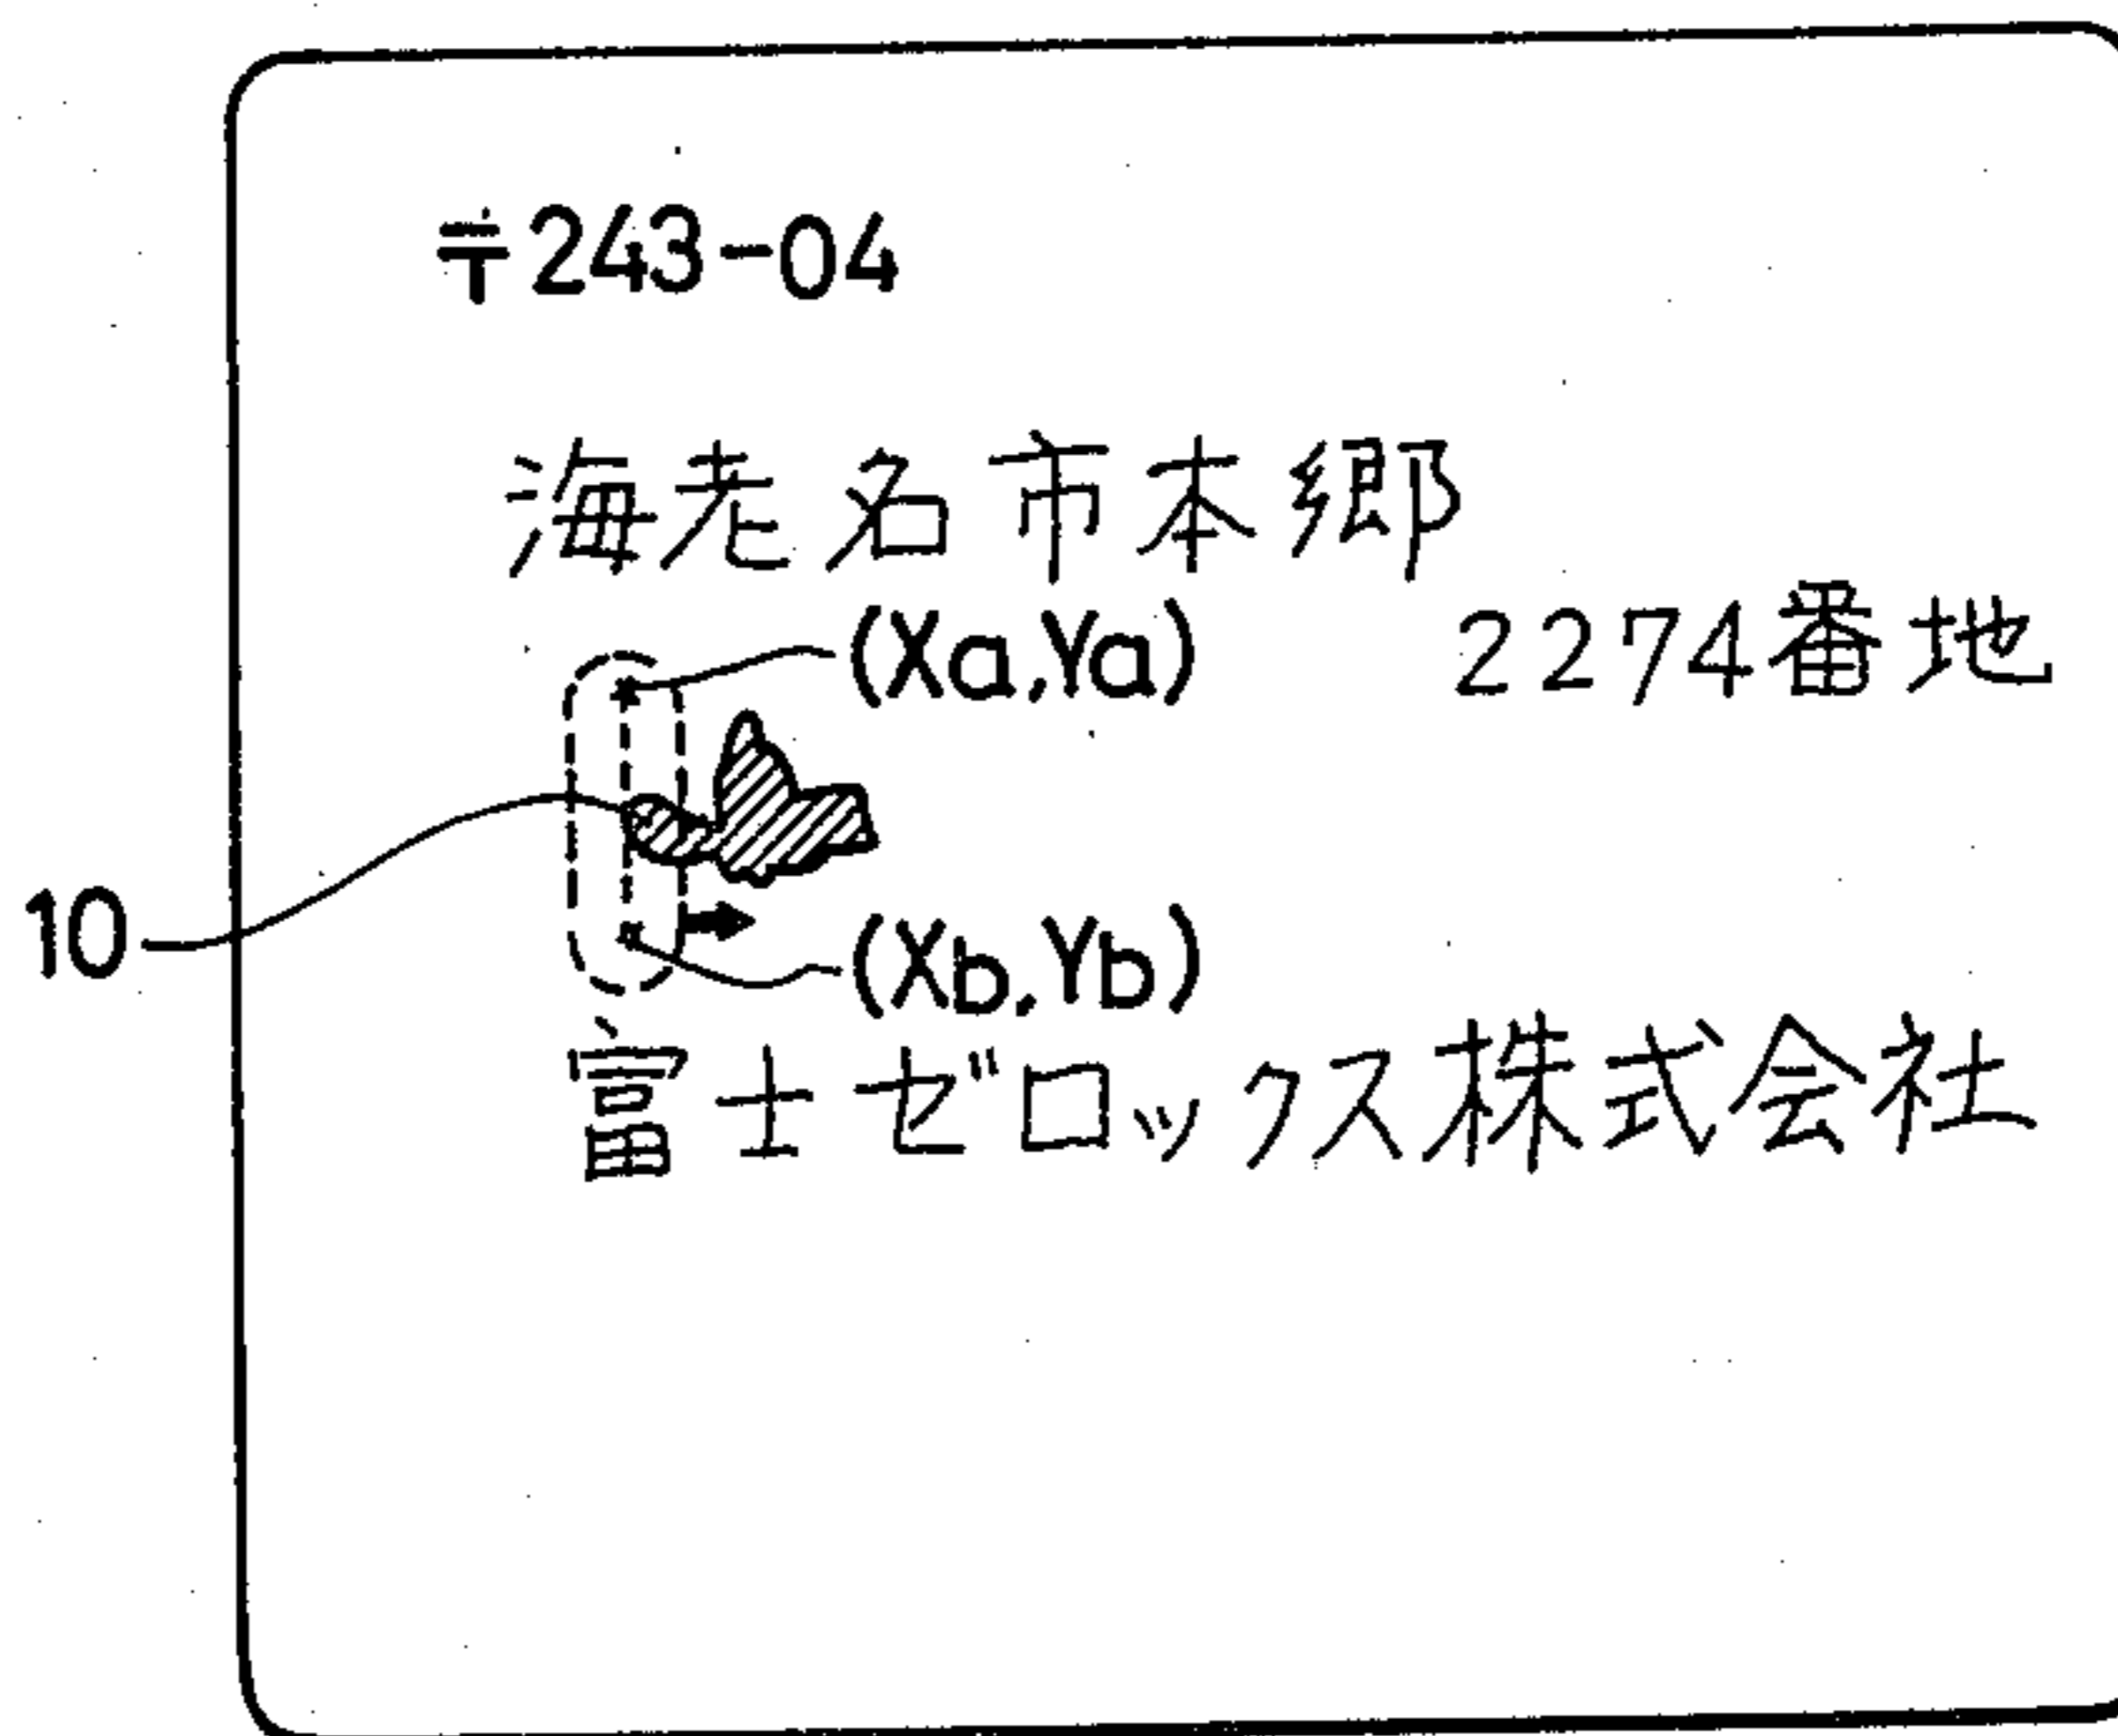 〒243-04
海老名市本郷
(Xa,Ya)
2274番地
10
(Xb,Yb)
富士ゼロックス株式会社